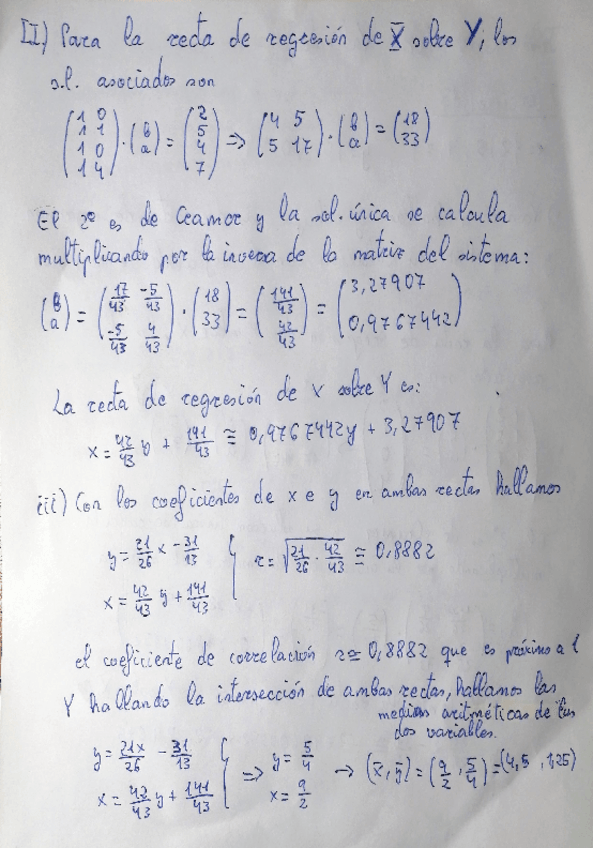 II) Para la recta de regresión de X̄ sobre Y, los
s.l. asociados son
(1 0; 1 1; 1 0; 1 4) · (b; a) = (2; 5; 4; 7) => (4 5; 5 17) · (b; a) = (18; 33)
El 2º es de Cramer y la sol. única se calcula
multiplicando por la inversa de la matriz del sistema:
(b; a) = (17/43 -5/43; -5/43 4/43) · (18; 33) = (141/43; 42/43) = (3,27907; 0,9767442)
La recta de regresión de x sobre Y es:
x = 42/43 y + 141/43 ≅ 0,9767442y + 3,27907
iii) Con los coeficientes de x e y en ambas rectas hallamos
y = 21/26 x - 31/13
x = 42/43 y + 141/43 } r = √(21/26 · 42/43) ≅ 0,8882
el coeficiente de correlación r ≅ 0,8882 que es próximo a 1
Y hallando la intersección de ambas rectas, hallamos las
medias aritméticas de las
dos variables.
y = 21x/26 - 31/13
x = 42/43 y + 141/43 } => y = 5/4
x = 9/2 → (x̄, ȳ) = (9/2, 5/4) = (4,5 , 1,25)